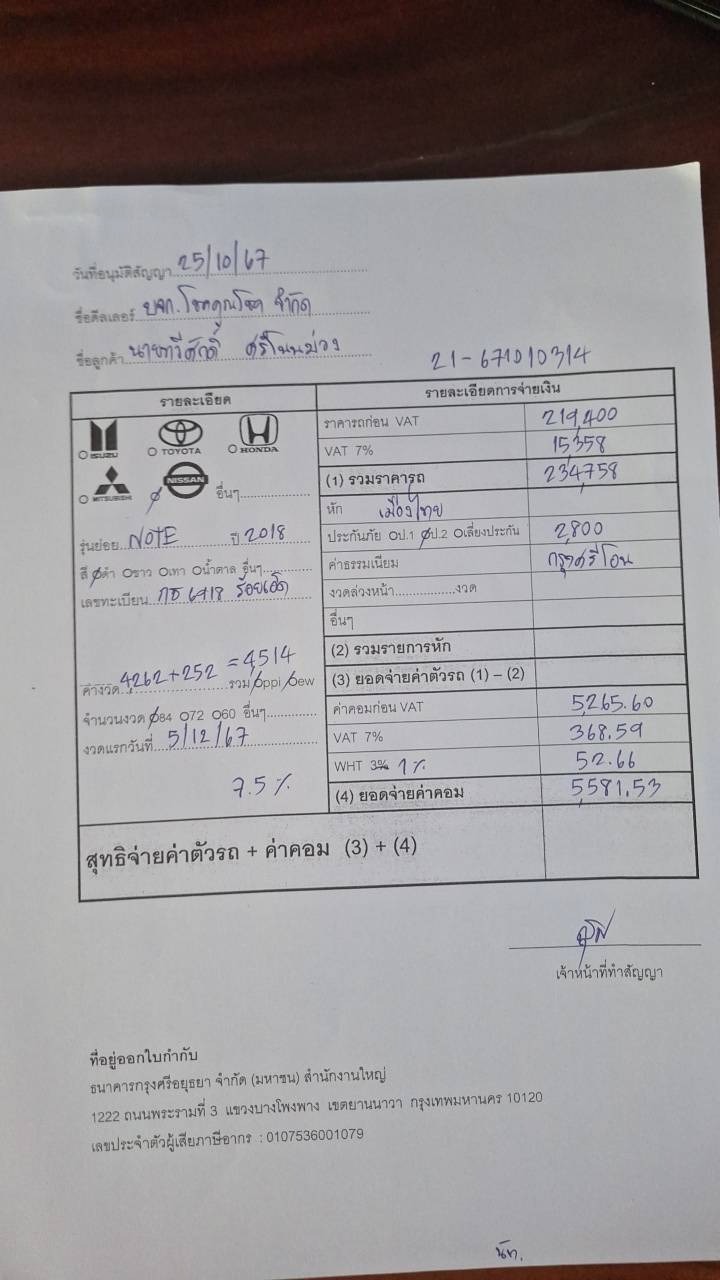 วันที่อนุมัติสัญญา 25/10/67
ชื่อดีลเลอร์ บจก.โชคคูณโชค จำกัด
ชื่อลูกค้า นายทวีศักดิ์ ศรีโนนม่วง
21-671010314
รายละเอียด
ISUZU TOYOTA HONDA
MITSUBISHI NISSAN อื่นๆ
รุ่นย่อย NOTE ปี 2018
สี ดำ ขาว เทา น้ำตาล อื่นๆ
เลขทะเบียน 6418 ร้อยเอ็ด
ค่างวด 4262+252 = 4514 รวม ppi ew
จำนวนงวด 84 72 60 อื่นๆ
งวดแรกวันที่ 5/12/67
7.5%
รายละเอียดการจ่ายเงิน
ราคารถก่อน VAT 219,400
VAT 7% 15,358
(1) รวมราคารถ 234,758
หัก เมืองไทย
ประกันภัย ป.1 ป.2 เลี่ยงประกัน 2,800
ค่าธรรมเนียม กรุงศรีโอน
งวดล่วงหน้า.................งวด
อื่นๆ
(2) รวมรายการหัก
(3) ยอดจ่ายค่าตัวรถ (1) – (2)
ค่าคอมก่อน VAT 5,265.60
VAT 7% 368.59
WHT 3% 1% 52.66
(4) ยอดจ่ายค่าคอม 5,581.53
สุทธิจ่ายค่าตัวรถ + ค่าคอม (3) + (4)
เจ้าหน้าที่ทำสัญญา
ที่อยู่ออกใบกำกับ
ธนาคารกรุงศรีอยุธยา จำกัด (มหาชน) สำนักงานใหญ่
1222 ถนนพระรามที่ 3 แขวงบางโพงพาง เขตยานนาวา กรุงเทพมหานคร 10120
เลขประจำตัวผู้เสียภาษีอากร : 0107536001079